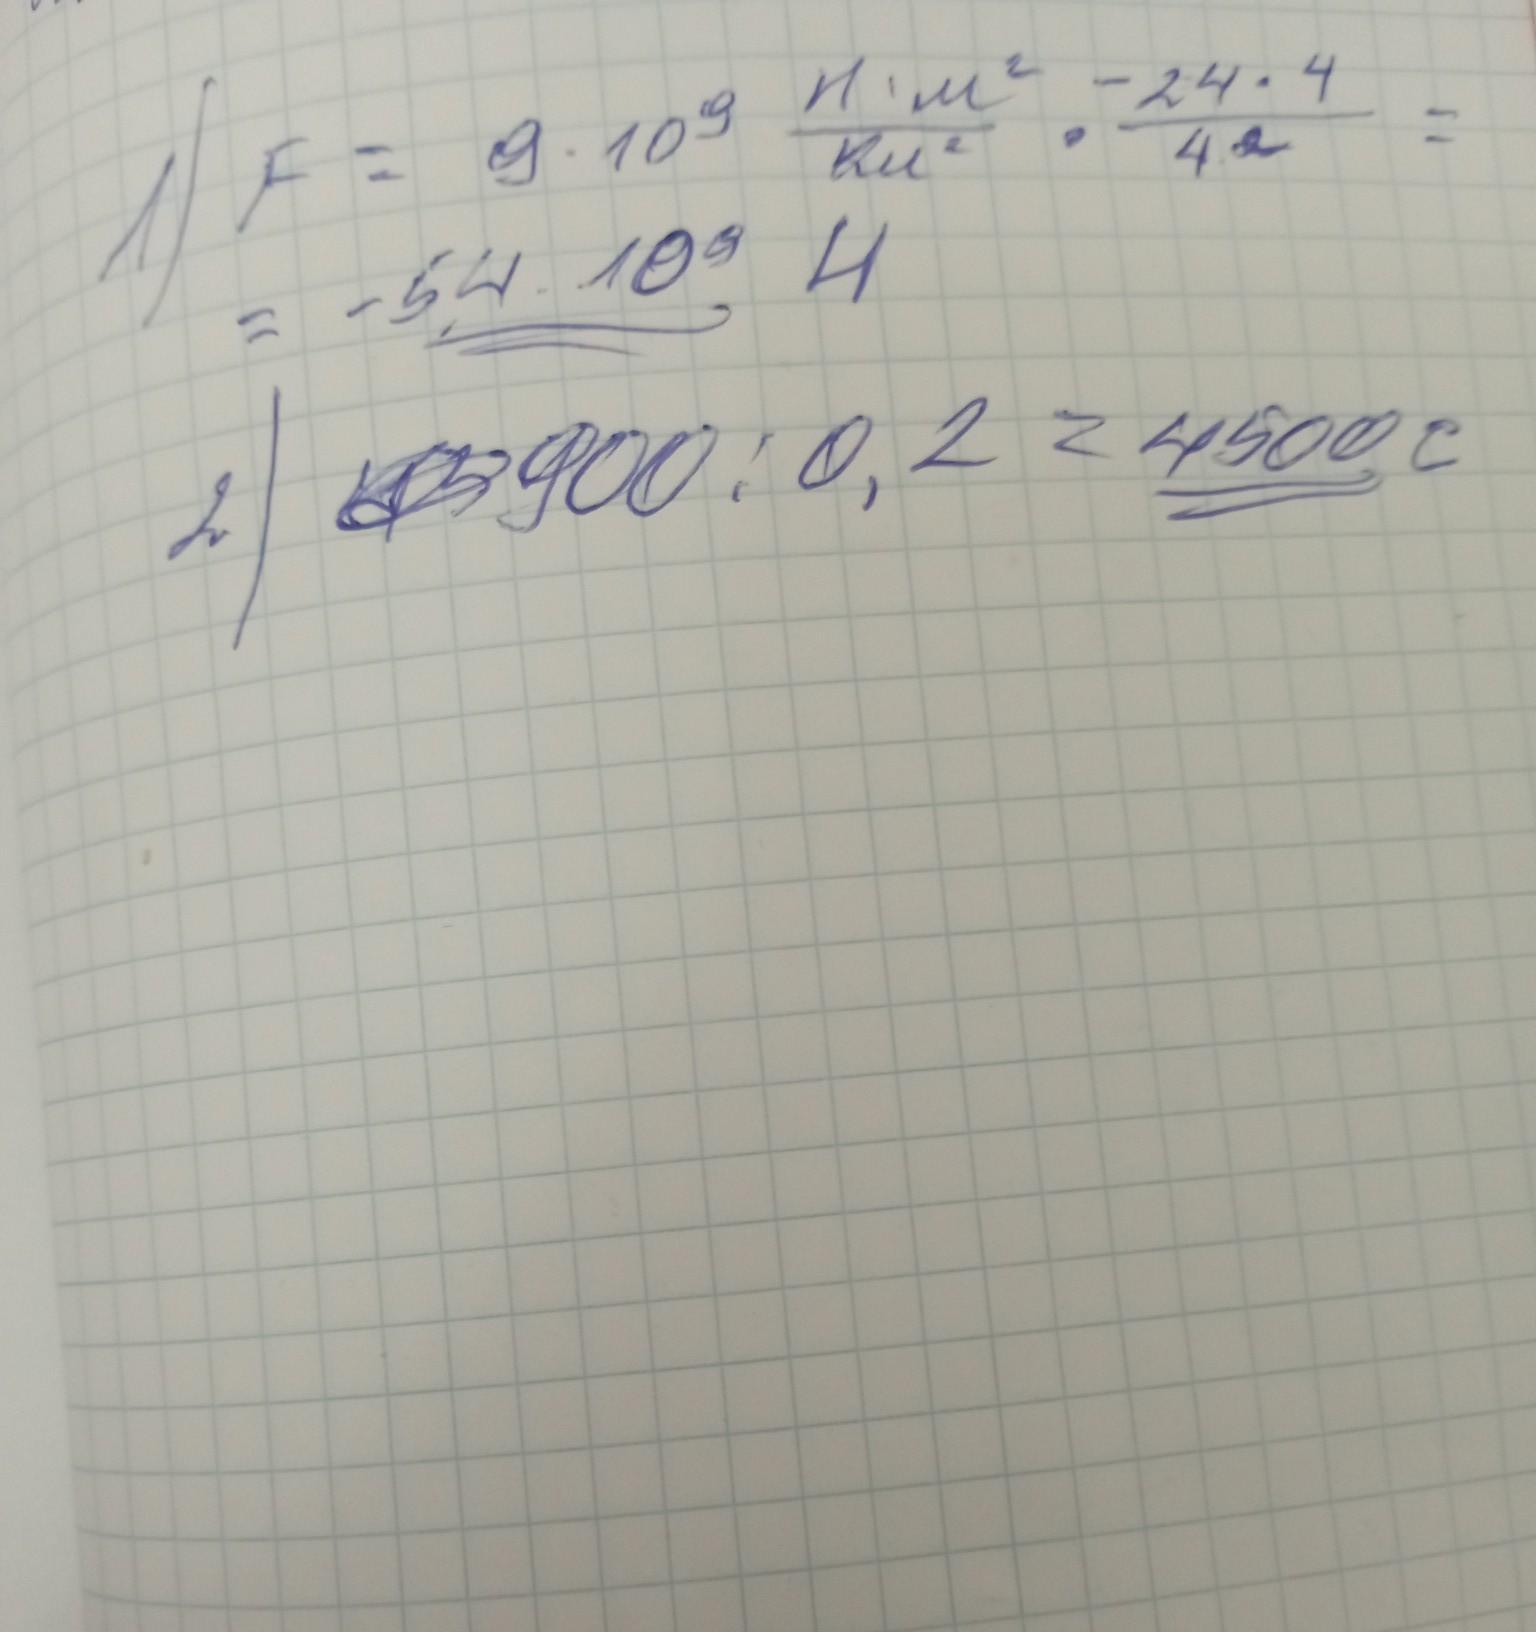 1) F = 9 · 10⁹ Н·м²/Кл² · -24·4/4² =
= -54 · 10⁹ Н
2) 900 : 0,2 = 4500 с